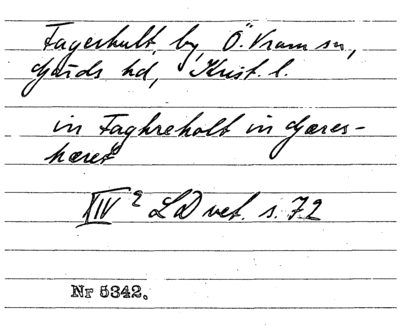 Fagerhult, by, Ö. Vram sn,
Gärds hd, Krist. l.
in Faghreholt in Gæres-
hæret
XIV 2 LD vet. s. 72
Nr 5342.